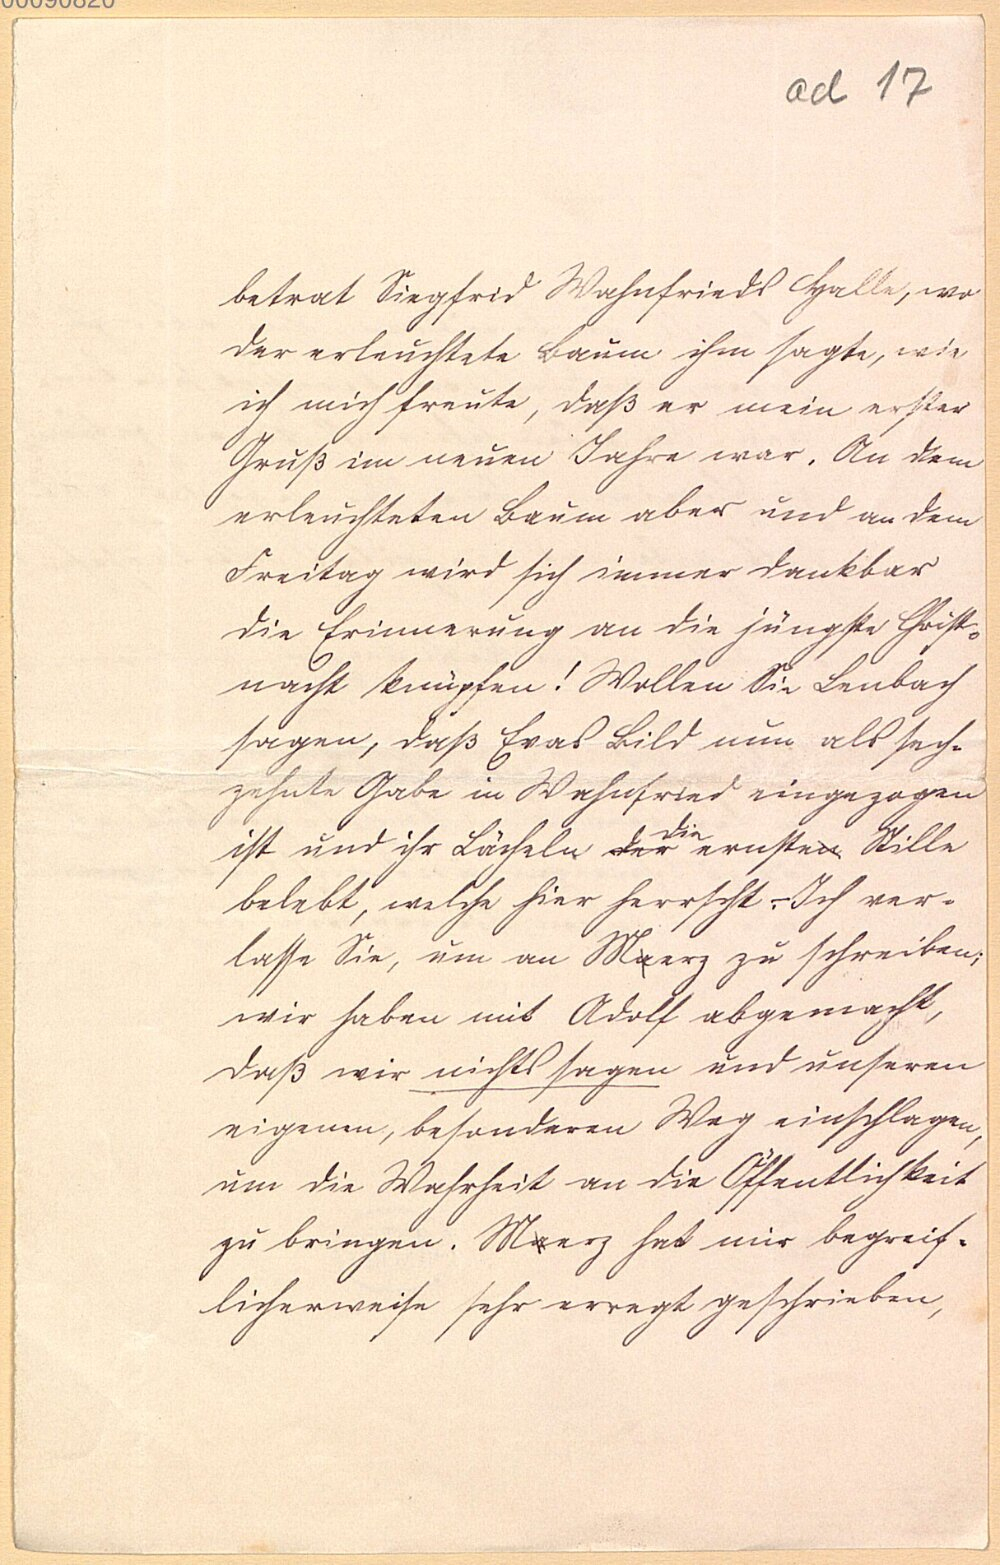 00090820
ad 17
betrat Siegfrid Wahnfrieds Halle, wo
der erleuchtete Baum ihm sagte, wie
ich mich freute, daß er mein erster
Gruß im neuen Jahre war. An dem
erleuchteten Baum aber und an dem
Freitag wird sich immer dankbar
die Erinnerung an die jüngste Christ-
nacht knüpfen! Wollen Sie Lenbach
sagen, daß Evas Bild nun als sech-
zehnte Gabe in Wahnfried eingezogen
ist und ihr Lächeln der die ernsten Stille
belebt, welche hier herrscht. – Ich ver-
lasse Sie, um an Maerz zu schreiben;
wir haben mit Adolf abgemacht,
daß wir nichts sagen und unseren
eigenen, besonderen Weg einschlagen,
um die Wahrheit an die Öffentlichkeit
zu bringen. Maerz hat mir begreif-
licherweise sehr erregt geschrieben,